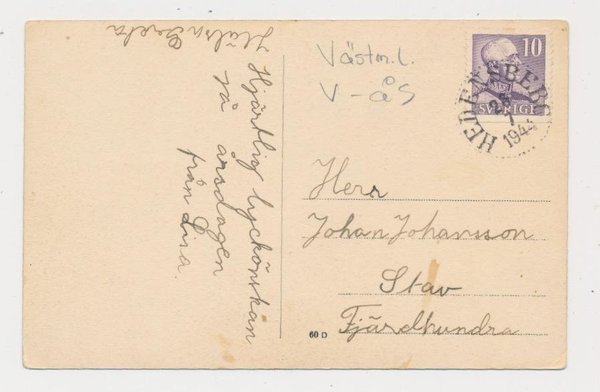 Hjärtlig lyckönskan
på årsdagen
från Lisa.
Hälsa Greta
Västm. l.
V-ÅS
10
SVERIGE
HEDENSBERG
1944
Herr
Johan Johansson
Stav
Fjärdhundra
60 D